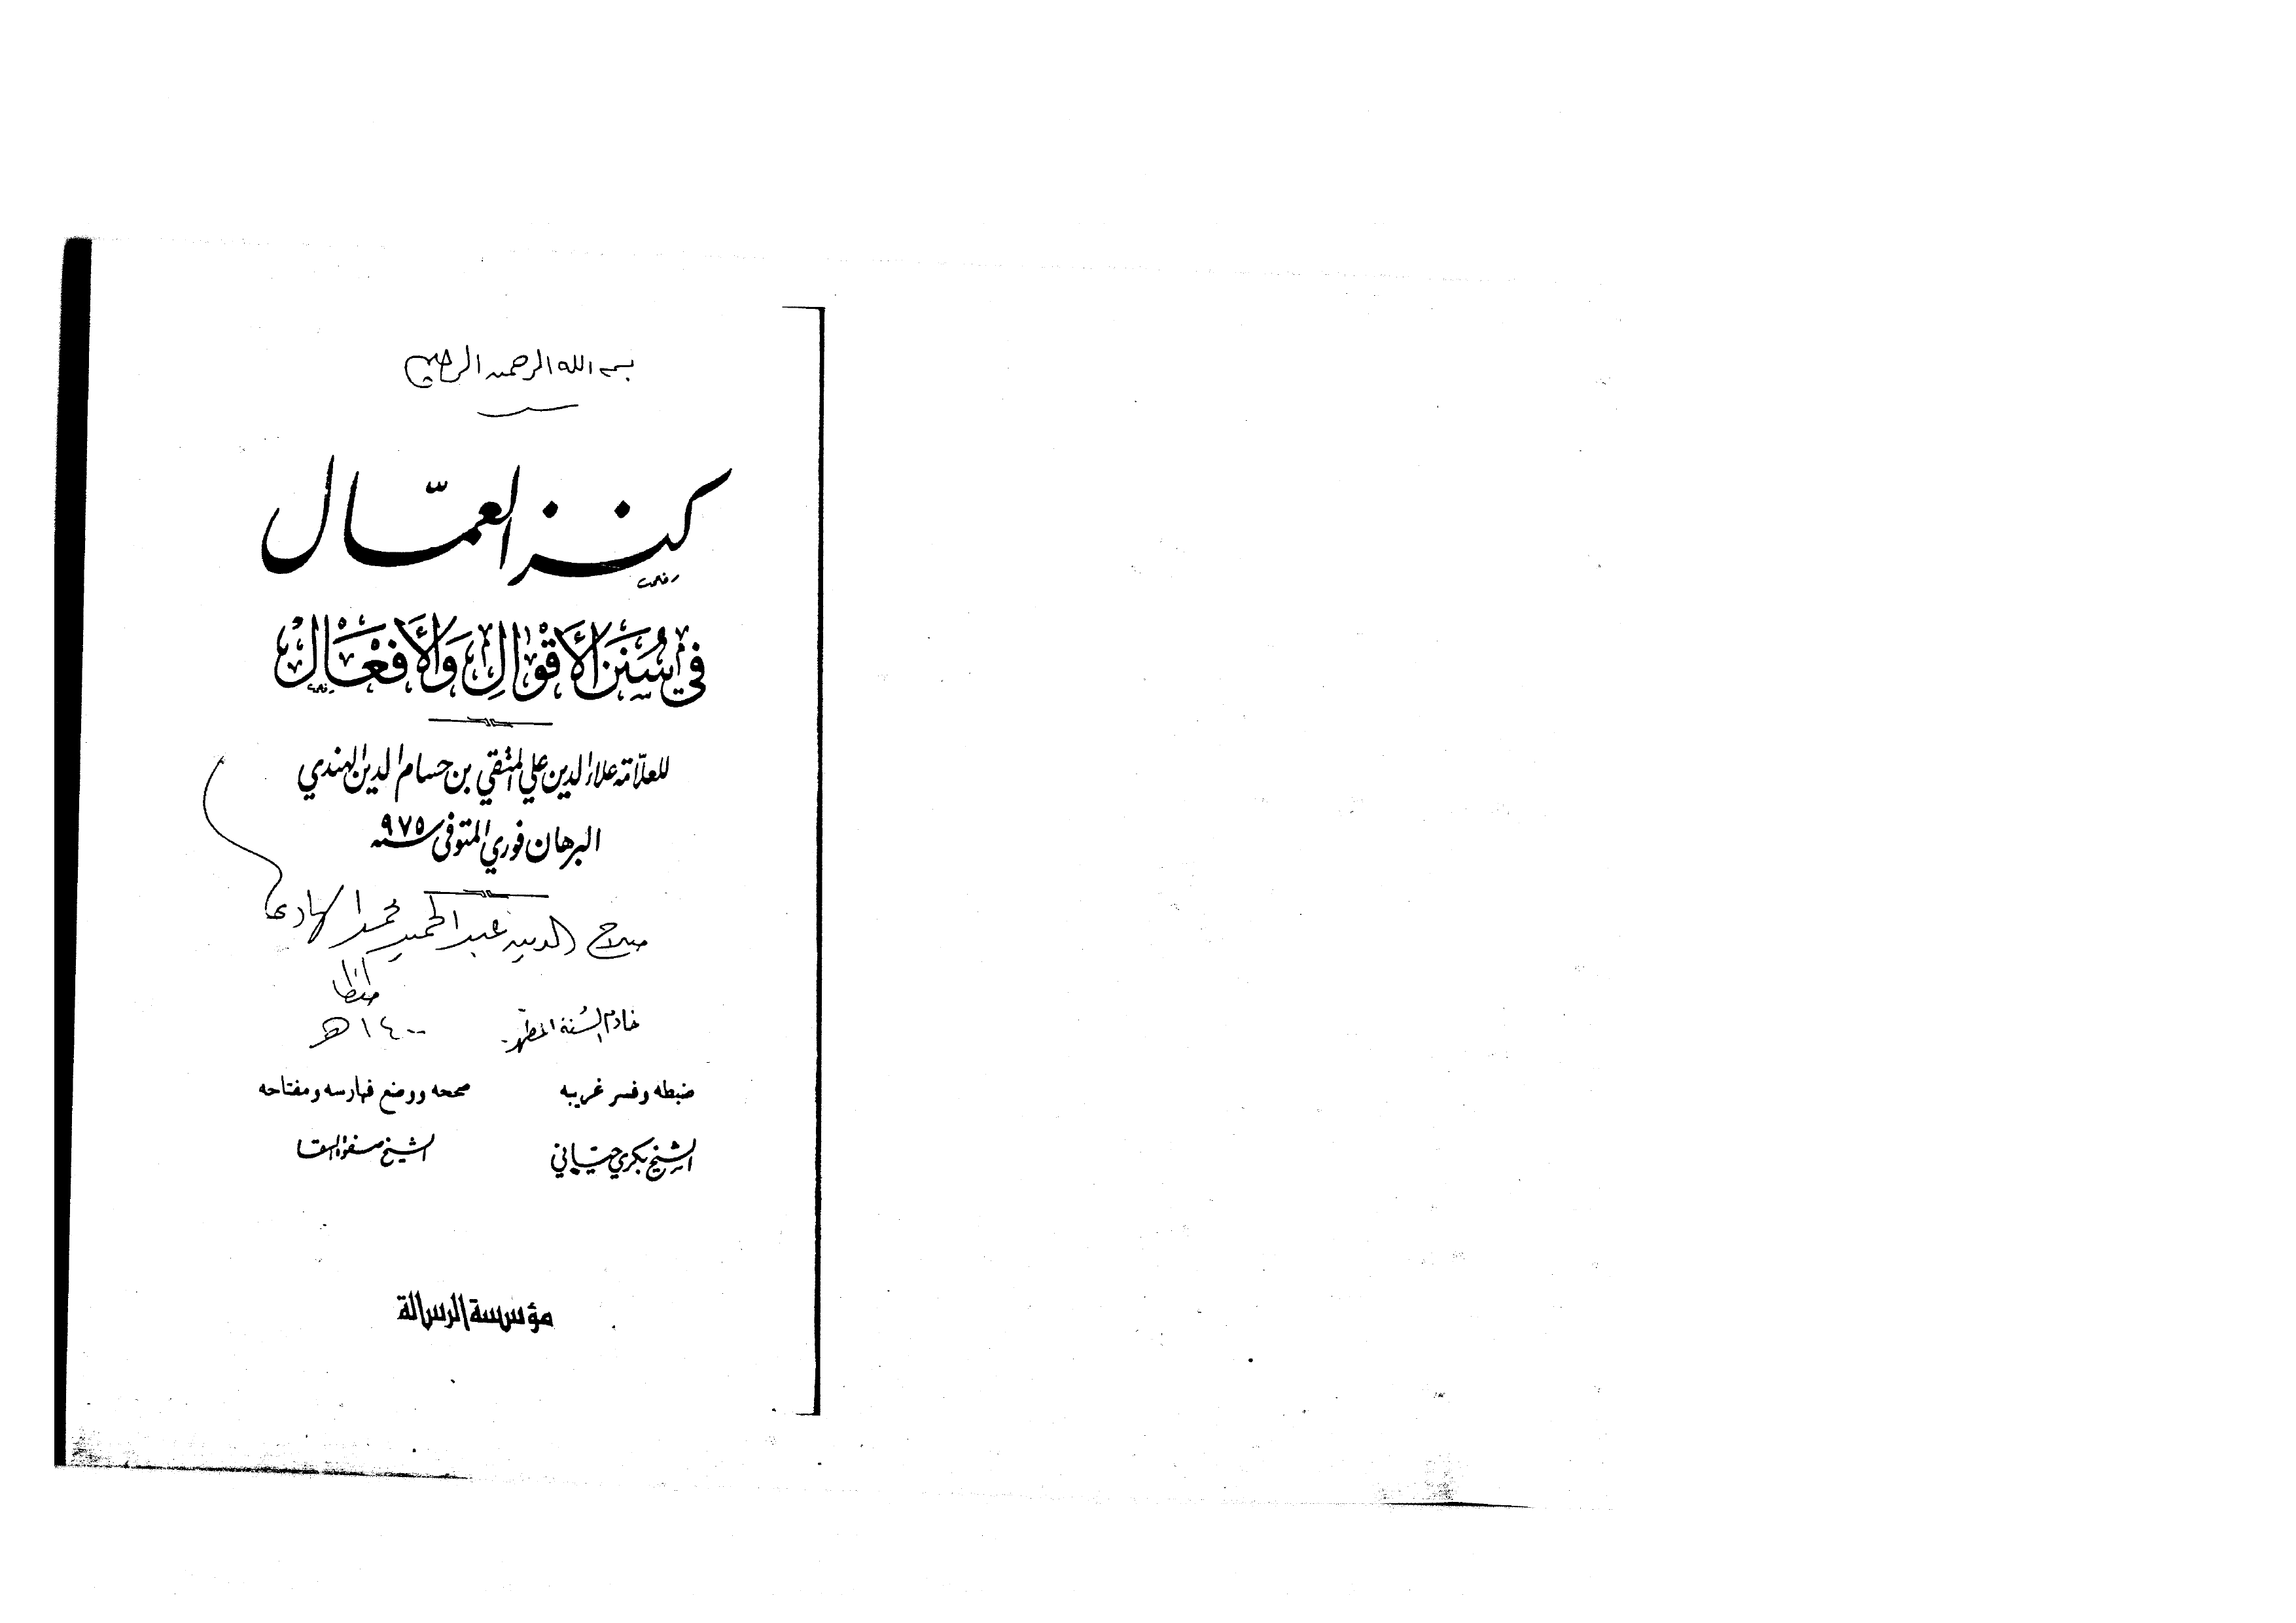 بسم الله الرحمن الرحيم
كنز العمّال
في سُنَنِ الأَقْوَالِ وَالأَفْعَالِ
للعلّامة علاء الدين علي المتقي بن حسام الدين الهندي
البرهان فوري المتوفى سنة ٩٧٥
صلاح الدين عبد الحميد محمد الهادي
طنطا
خادم السُنة المطهرة
١٤٠٠ هـ
ضبطه وفسر غريبه
صححه ووضع فهارسه ومفتاحه
الشيخ بكري حيّاني
الشيخ صفوة السقا
مؤسسة الرسالة